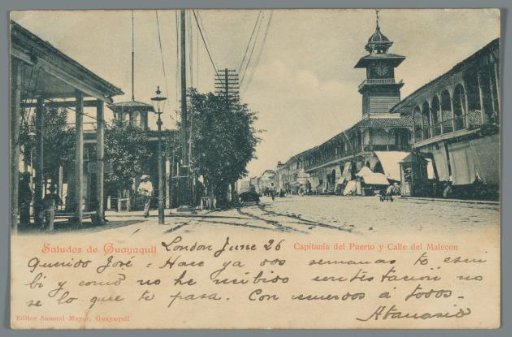 Saludos de Guayaquil London June 26 Capitanía del Puerto y Calle del Malecon
Querido José - Hace ya dos semanas te escri
bi y como no he recibido contestación no
se lo que te pasa. Con recuerdos á todos.-
Atanasio
Editor Samuel Mayer, Guayaquil